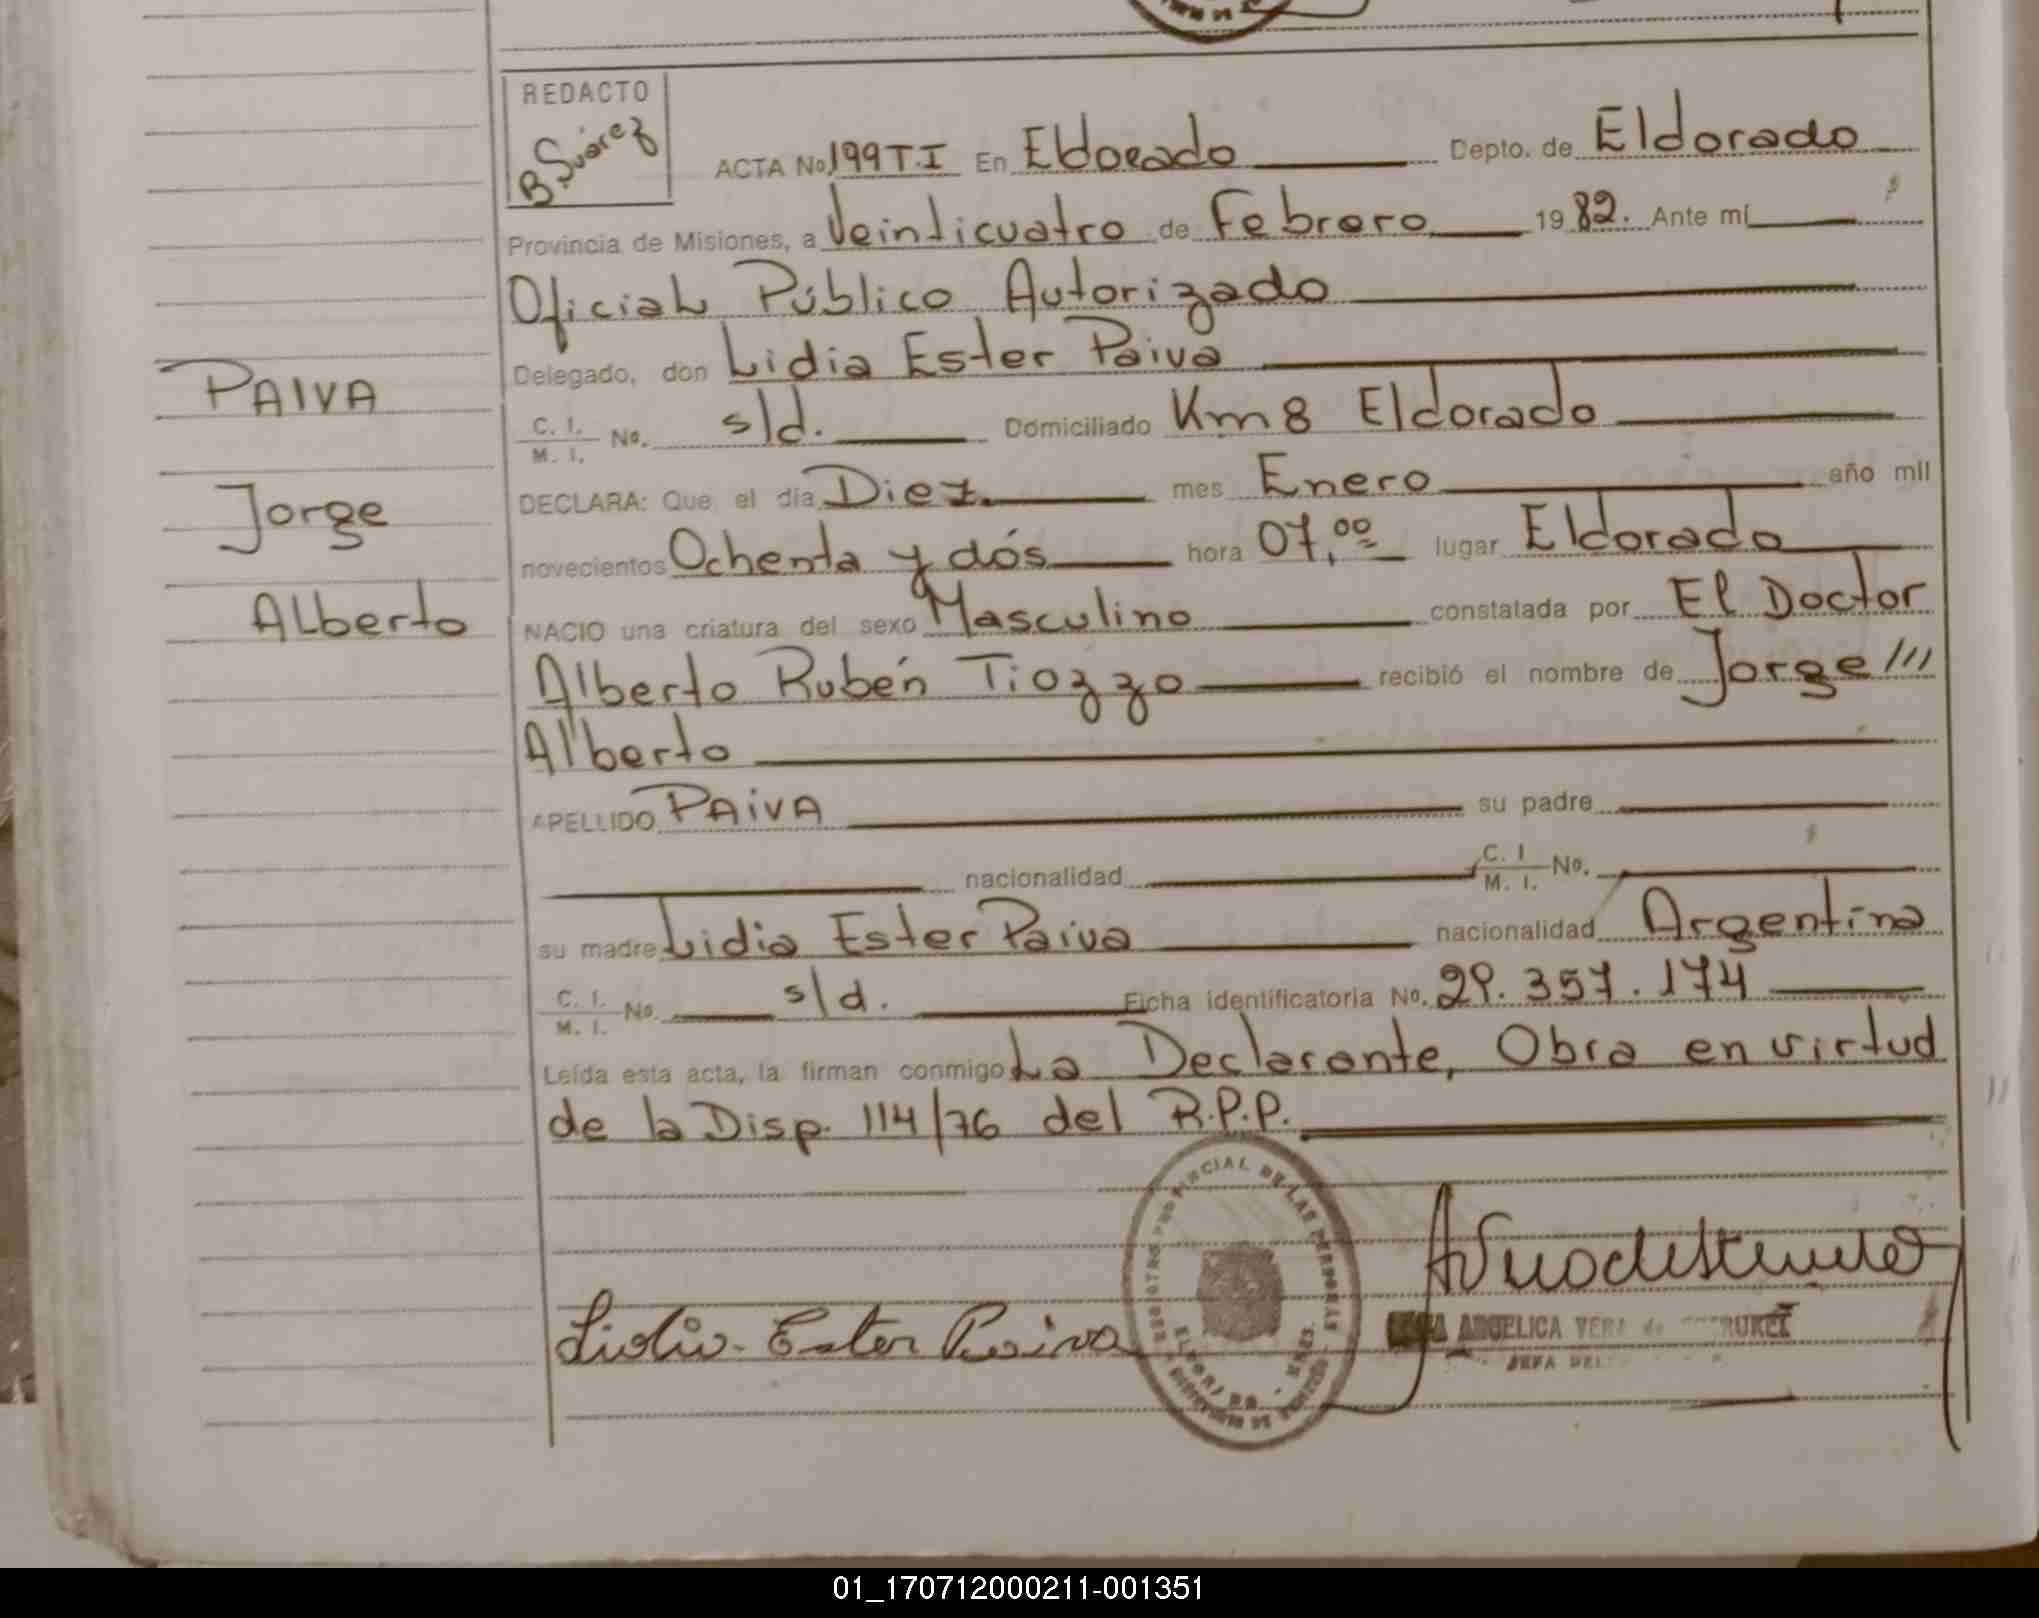 REDACTO
B. Suárez
ACTA No. 199 T.I En Eldorado Depto. de Eldorado
Provincia de Misiones, a Veinticuatro de Febrero 19 82. Ante mí
Oficial Público Autorizado
Delegado, don Lidia Ester Paiva
C. I. M. I. No. s/d. Domiciliado Km 8 Eldorado
DECLARA: Que el día Diez. mes Enero año mil
novecientos Ochenta y dós hora 07,00 lugar Eldorado
NACIO una criatura del sexo Masculino constatada por El Doctor
Alberto Rubén Tiozzo recibió el nombre de Jorge ///
Alberto
APELLIDO PAIVA su padre
nacionalidad C. I M. I. No.
su madre Lidia Ester Paiva nacionalidad Argentina
C. I. M. I. No. s/d. Ficha identificatoria No. 29.357.174
Leída esta acta, la firman conmigo La Declarante, Obra en virtud
de la Disp. 114/76 del R.P.P.
PAIVA
Jorge
Alberto
Lidia Ester Paiva
PROVINCIAL DE LAS PERSONAS
ELDORADO - MNES.
ANGELICA VERA de
JEFA
01_170712000211-001351